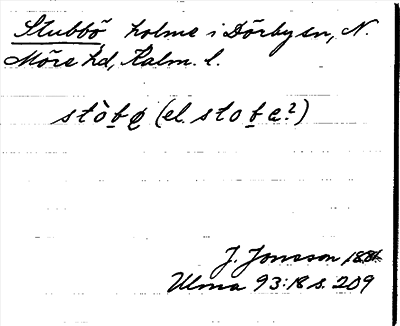 Stubbö holme i Dörbysn, N.
Möre hd, Kalm. l.
stòbø (el. stobe?)
J. Jonsson 1884
Ulma 93:18 s. 209